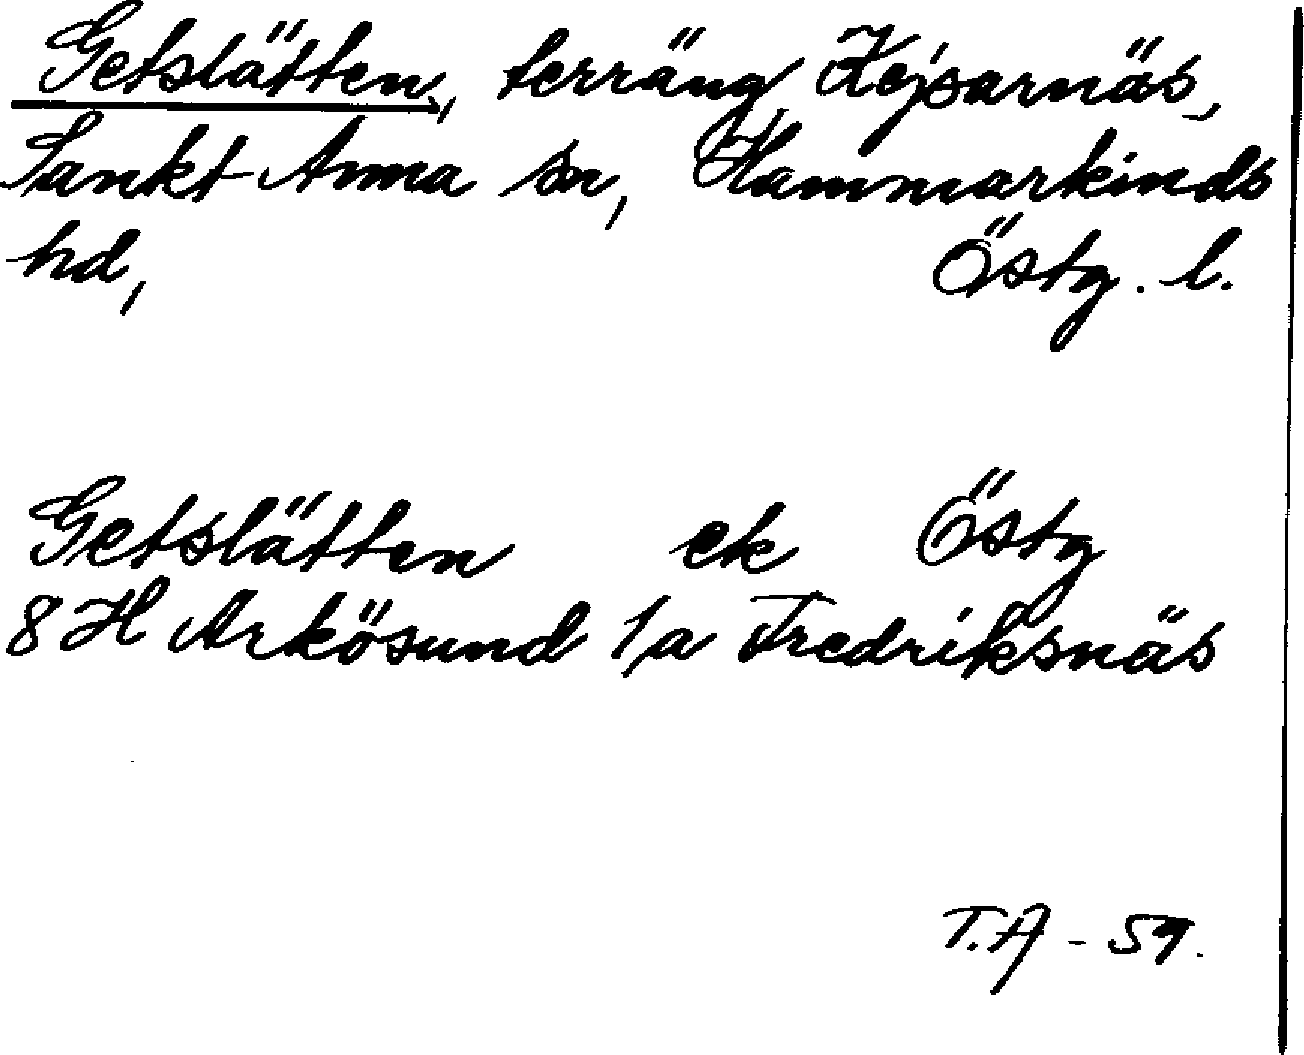 Getslätten, terräng, Kejsarnäs,
Sankt Anna sn, Hammarkinds
hd, Östg. l.
Getslätten ek Östg
8 H Arkösund 1a Fredriksnäs
T.A - 59.